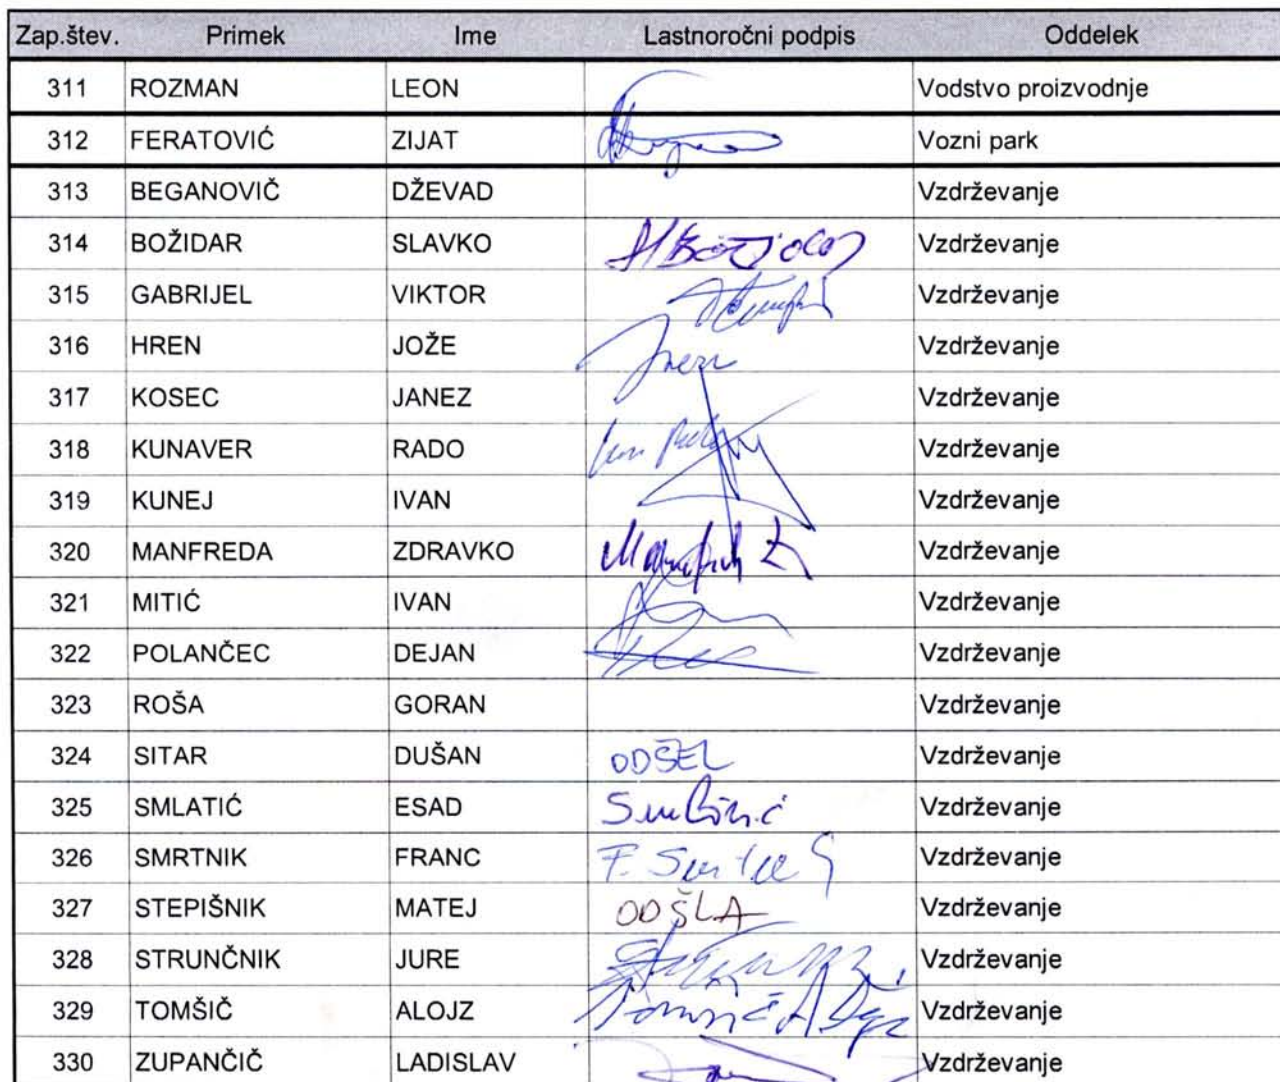 Zap.štev. Primek Ime Lastnoročni podpis Oddelek
311 ROZMAN LEON Vodstvo proizvodnje
312 FERATOVIĆ ZIJAT Vozni park
313 BEGANOVIČ DŽEVAD Vzdrževanje
314 BOŽIDAR SLAVKO Vzdrževanje
315 GABRIJEL VIKTOR Vzdrževanje
316 HREN JOŽE Vzdrževanje
317 KOSEC JANEZ Vzdrževanje
318 KUNAVER RADO Vzdrževanje
319 KUNEJ IVAN Vzdrževanje
320 MANFREDA ZDRAVKO Vzdrževanje
321 MITIĆ IVAN Vzdrževanje
322 POLANČEC DEJAN Vzdrževanje
323 ROŠA GORAN Vzdrževanje
324 SITAR DUŠAN ODŠEL Vzdrževanje
325 SMLATIĆ ESAD Vzdrževanje
326 SMRTNIK FRANC Vzdrževanje
327 STEPIŠNIK MATEJ ODŠLA Vzdrževanje
328 STRUNČNIK JURE Vzdrževanje
329 TOMŠIČ ALOJZ Vzdrževanje
330 ZUPANČIČ LADISLAV Vzdrževanje